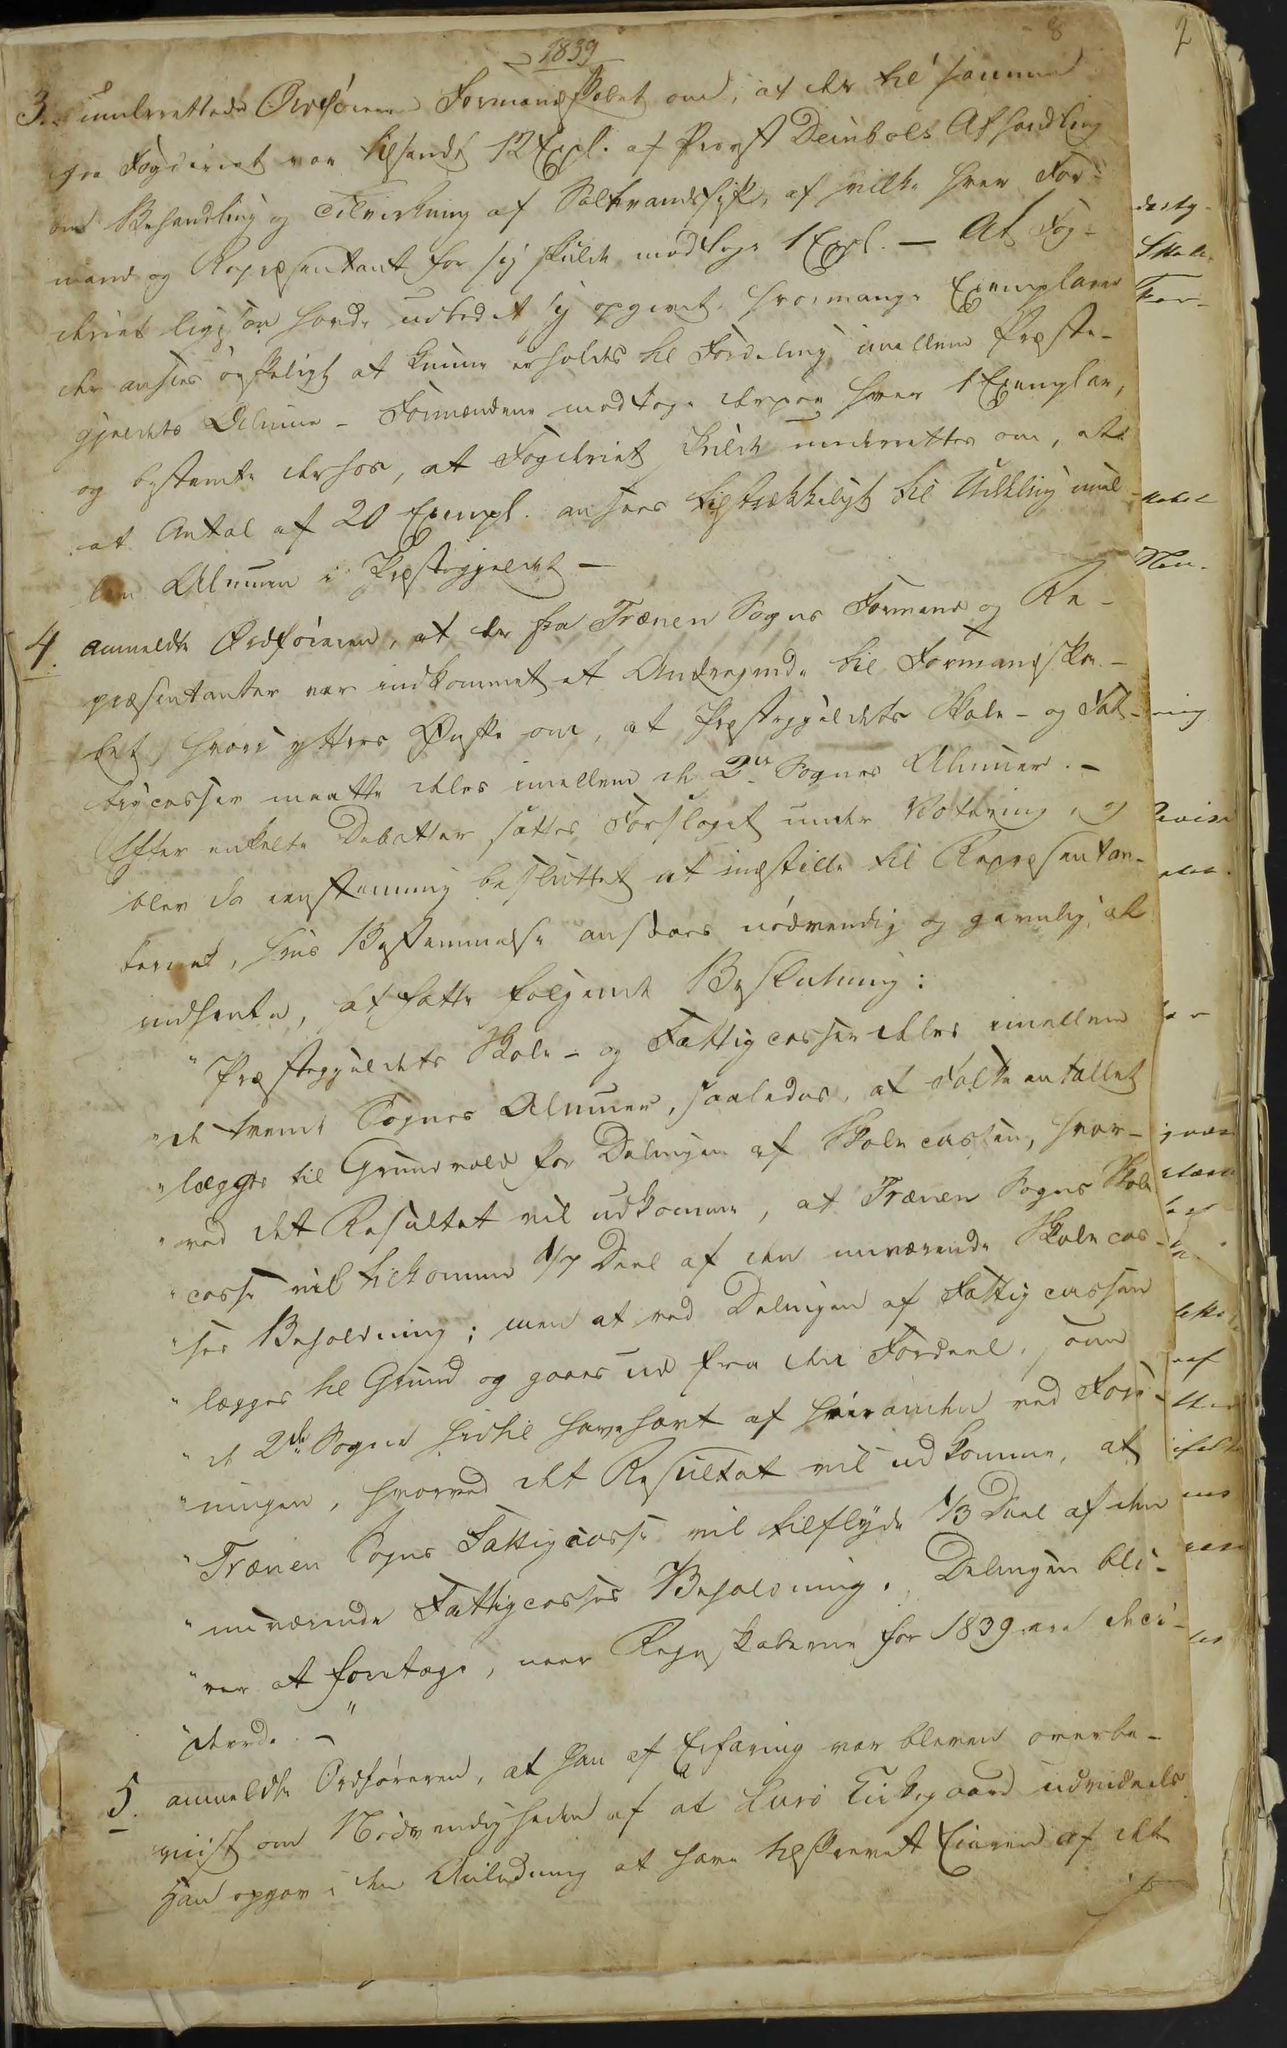 8
2
1839
3. underrettede Ordføreren Formandskabet om, at der til samme
fra Fogderiet var tilsendt 12 Expl. af Provst Deinbols Afhandling
om Behandling og Tilvirkning af Saltvandsfisk, af hvilke hver For-
mand og Repræsentant for sig skulde modtage 1 Expl. — At Fog-
deriet ligesom havde udbedet sig opgivet, hvormange Exemplarer
der ansees ønskeligt at kunne erholdes til Fordeling imellem Præste-
gjeldets Almue - Formændene modtoge derpaa hver 1 Exemplar,
og bestemte derhos, at Fogderiet skulde underrettes om, at
et Antal af 20 Exempl. ansees tilstrækkeligt til Uddeling imel-
lem Almuen i Præstegjeldet —
4. anmeldte Ordføreren, at der fra Trænen Sogns Formand og Re-
præsentanter var indkommet et Andragende til Formandska-
bet, hvori yttres Ønske om, at Præstegjeldets Skole- og Fat-
tigcasser maatte deles imellem de 2de Sognes Almuer. -
Efter enkelte Debatter sattes Forslaget under Votering, og
blev da eenstemmig besluttet at indstille til Repræsentan-
terne, hvis Bestemmelse ansaaes nødvendig og gavnlig at
indhente, at fatte følgende Beslutning:
"Præstegjeldets Skole- og Fattigcasser deles imellem
"de tvende Sognes Almuer, saaledes, at Folketallet
"lægges til Grundvold for Delingen af Skolecassen, hvor-
"ved det Resultat vil udkomme, at Trænen Sogns Skole
"casse vil tilkomme 1/7 Deel af den nuværende Skolecas-
"ses Beholdning; men at ved Delingen af Fattigcassen
"lægges til Grund og gaaes ud fra den Fordeel, som
"de 2de Sogne hidtil have havt af hverandre ved Fore-
"ningen, hvorved det Resultat vil udkomme, at
"Trænen Sogns Fattigcasse vil tilflyde 1/3 Deel af den
"nuværende Fattigcasses Beholdning. Delingen bli-
"ver at foretage, naar Regnskaberne for 1839 ere deci-
"derede. - "
5. anmeldte Ordføreren, at han af Erfaring var bleven overbe-
viist om Nødvendigheden af at Lurø Kirkegaard udvides
Han opgav i den Anledning at have tilskrevet Eieren af det